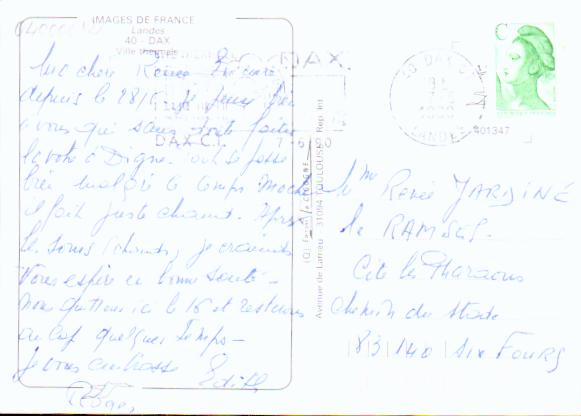 IMAGES DE FRANCE
Landes
40 - DAX
Ville thermale
Ma chère Renée
depuis le 28/5 je pense
à vous qui sans doute faites
la votre à Digne. Tout se passe
bien malgré le temps moche
il fait juste chaud. Après
les soins
Vous espère en bonne santé -
nous quittons ici le 16 et resterons
au Cap quelques temps -
je vous embrasse Edith
DAX
DAX C.T.
40 DAX C.T.
LANDES
C
401347
Avenue de Larrieu 31094 TOULOUSE Rep. Int
Mme Renée JARDINÉ
le RAMSES.
Cité les Pharaons
Chemin du Stade
83140 Six Fours